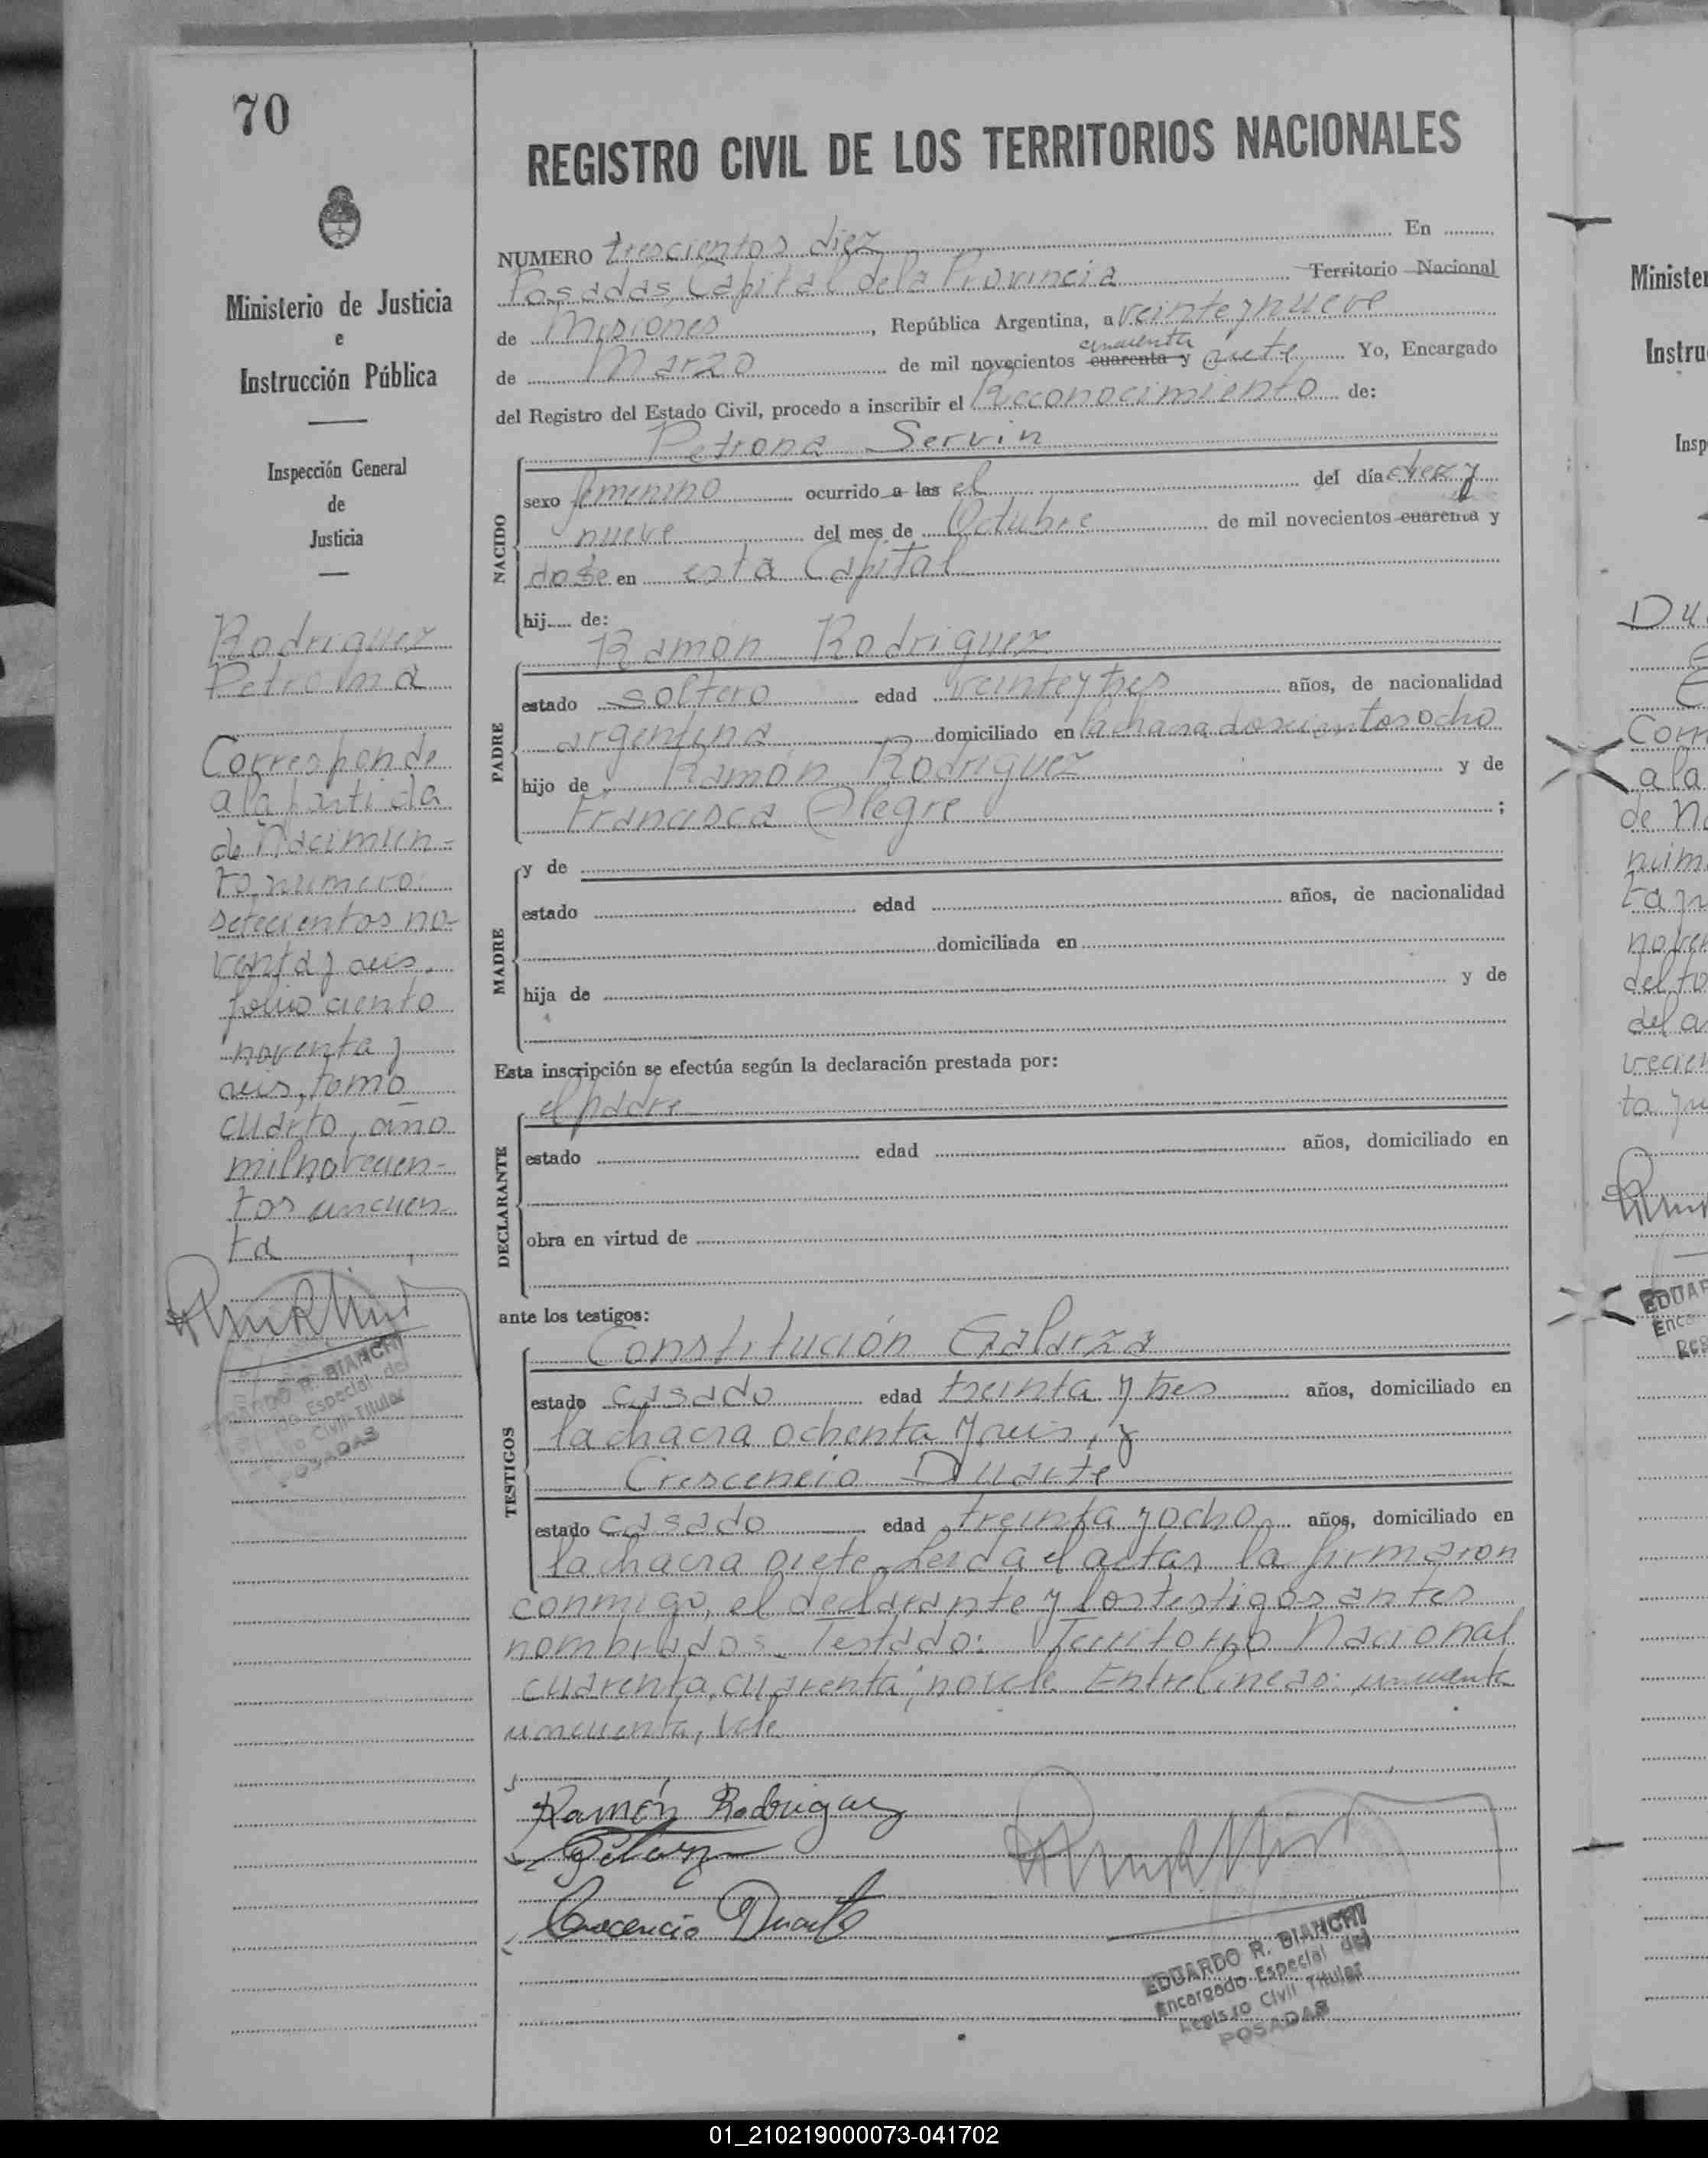 70
Ministerio de Justicia
e
Instrucción Pública
Inspección General
de
Justicia
Rodriguez
Petrona
Corresponde
a la partida
de Nacimien-
to numero
setecientos no-
venta y seis,
folio ciento
noventa y
seis, tomo
cuarto, año
mil novecien-
tos cincuen-
ta
BIANCHI
Especial del
Civil Titular
POSADAS
REGISTRO CIVIL DE LOS TERRITORIOS NACIONALES
NUMERO trescientos diez En
Posadas, Capital de la Provincia Territorio Nacional
de Misiones, República Argentina, a veinte y nueve
de Marzo de mil novecientos cuarenta y cincuenta siete Yo, Encargado
del Registro del Estado Civil, procedo a inscribir el Reconocimiento de:
Petrona Servin
NACIDO
sexo femenino ocurrido a las el del día diez y
nueve del mes de Octubre de mil novecientos cuarenta y
en esta Capital
hij de:
PADRE
Ramón Rodriguez
estado soltero edad veinte y tres años, de nacionalidad
argentina domiciliado en la chacra doscientos ocho
hijo de Ramón Rodriguez y de
Francisca Alegre ;
MADRE
y de
estado edad años, de nacionalidad
domiciliada en
hija de y de
Esta inscripción se efectúa según la declaración prestada por:
DECLARANTE
el padre
estado edad años, domiciliado en
obra en virtud de
ante los testigos:
TESTIGOS
Constitución Galarza
estado casado edad treinta y tres años, domiciliado en
la chacra ochenta y seis, y
Crescencio Duarte
estado casado edad treinta y ocho años, domiciliado en
la chacra siete. Leida el acta, la firmaron
conmigo, el declarante y los testigos antes
nombrados. Testado: Territorio Nacional
cuarenta, cuarenta; no vale. Entrelineas: cincuenta
cincuenta, Vale
Ramón Rodriguez
Crescencio Duarte
EDUARDO R. BIANCHI
Encargado Especial del
Registro Civil Titular
POSADAS
Minister
Instruc
Insp
Corr
a la
de Na
del
EDUAR
Enca
01_210219000073-041702